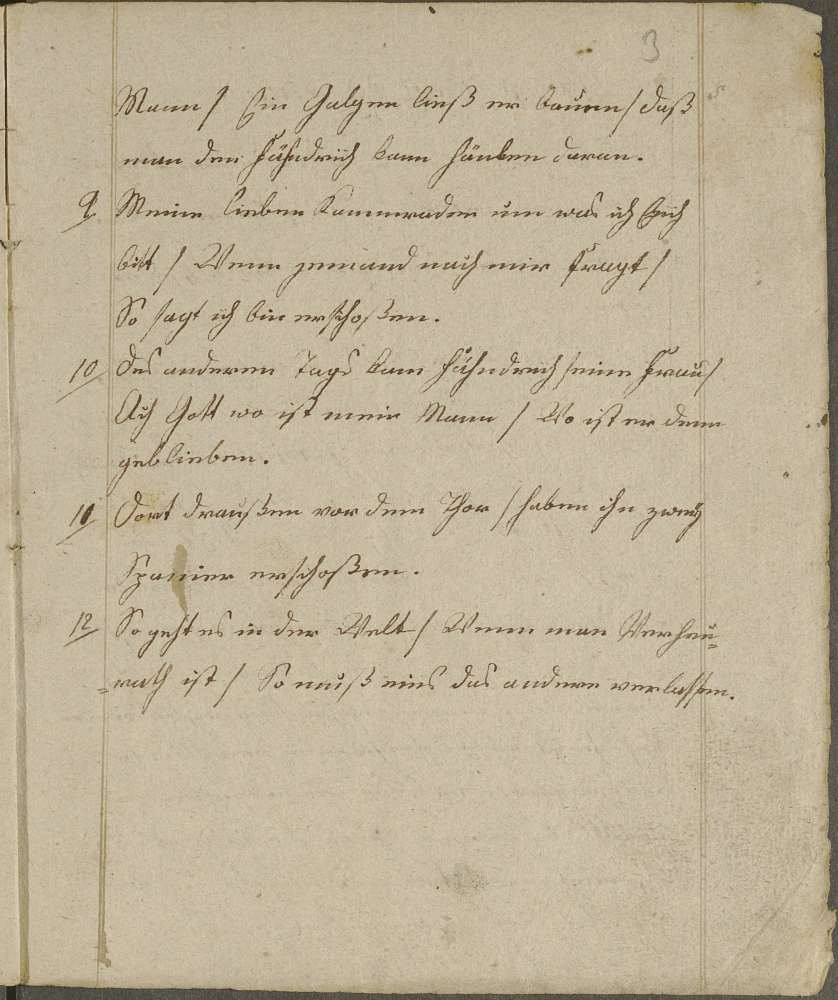 3
Mann / Ein Galgen ließ er bauen / daß
man den Fähndrich kann hänken daran.
9 Meine lieben Kammeraden um was ich Euch
bitt / Wenn jemand nach mir fragt /
So sagt ich bin erschoßen.
10 Des anderen Tags kam Fähndrich seine Frau /
Ach Gott wo ist mein Mann / Wo ist er denn
geblieben.
11 Dort draußen vor dem Thor / haben ihn zwey
Spanier erschoßen.
12 So geht es in der Welt / Wenn man Verheu=
=rath ist / So muß eins das andere verlassen.